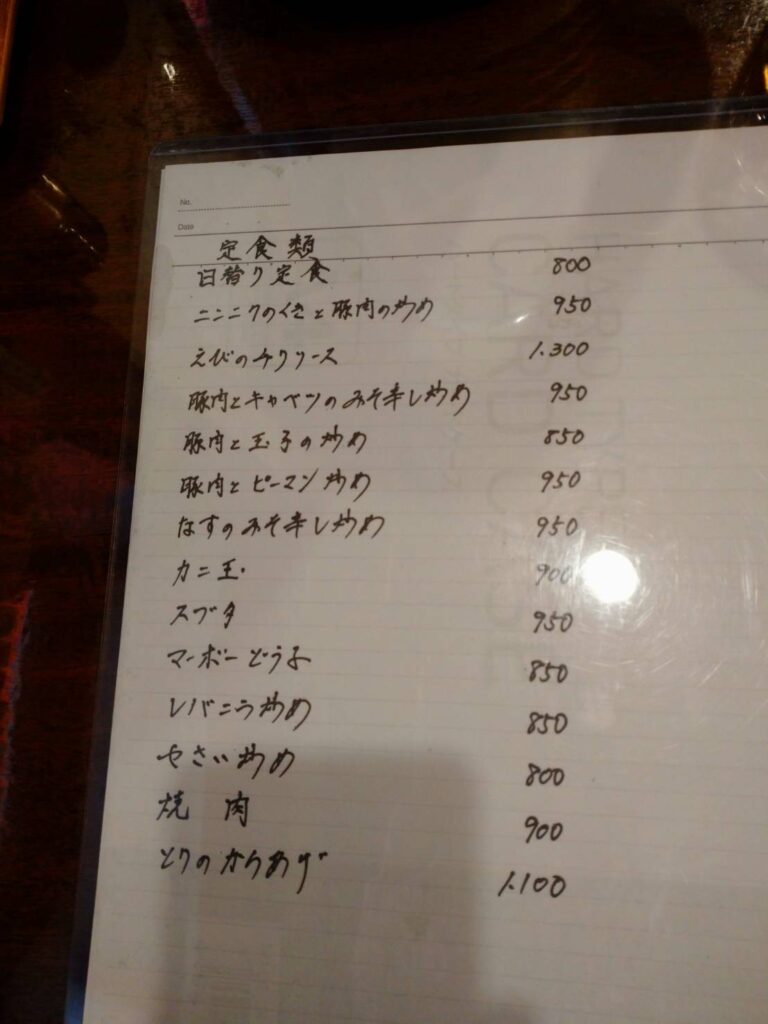 No.
Date
定食類
日替り定食 800
ニンニクのくきと豚肉の炒め 950
えびのチリソース 1.300
豚肉とキャベツのみそ辛し炒め 950
豚肉と玉子の炒め 850
豚肉とピーマン炒め 950
なすのみそ辛し炒め 950
カニ玉 900
スブタ 950
マーボーどうふ 850
レバニラ炒め 850
やさい炒め 800
焼肉 900
とりのからあげ 1.100
HARD TYPE
CARD CASE